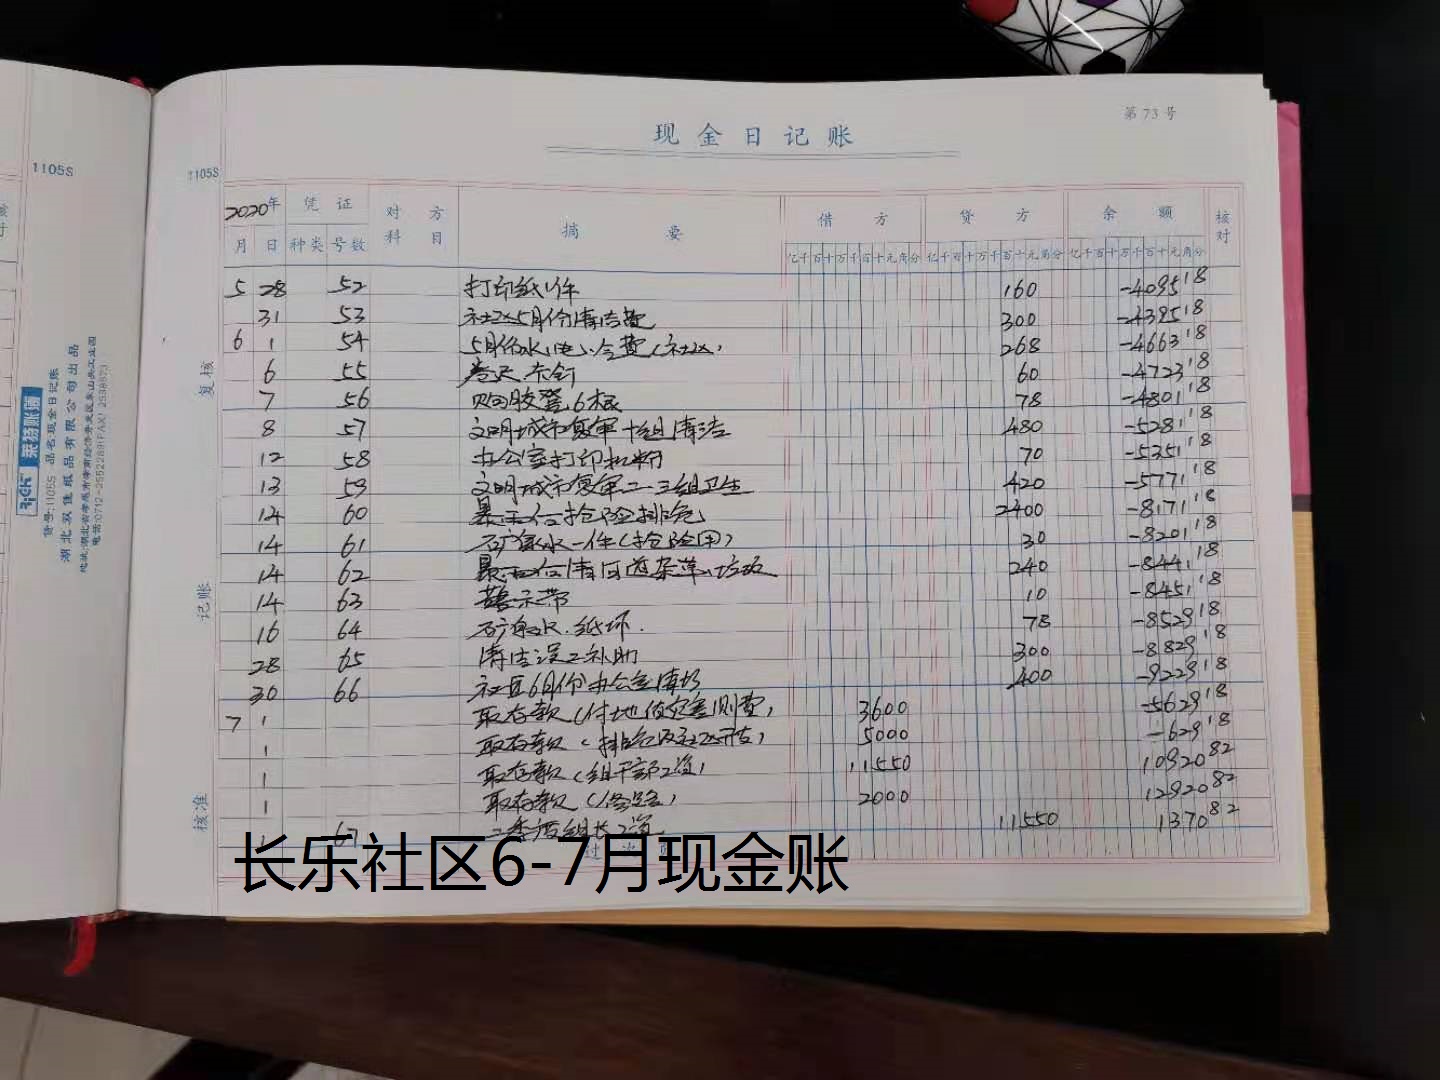 第 73 号
现金日记账
1105S
1105S
2020年 凭证 对方科目 摘要 借方 贷方 余额 核对
月 日 种类 号数 亿千百十万千百十元角分 亿千百十万千百十元角分 亿千百十万千百十元角分
5 28 52 打印纸1件 160 -4095 18
31 53 社区5月份清洁费 300 -4395 18
6 1 54 5月份水、电、 费(社区) 268 -4663 18
6 55 卷尺、 钉 60 -4723 18
7 56 购回胶凳6根 78 -4801 18
8 57 文明城市复审十组清洁 480 -5281 18
12 58 办公室打印机粉 70 -5351 18
13 59 文明城市复审二、三组卫生 420 -5771 18
14 60 暴雨后抢险排危 2400 -8171 18
14 61 矿泉水一件(抢险用) 30 -8201 18
14 62 暴雨后清 道杂草、垃圾 240 -8441 18
14 63 警示带 10 -8451 18
16 64 矿泉水、纸杯. 78 -8529 18
28 65 清洁员工补助 300 -8829 18
30 66 社区6月份办公室清 400 -9229 18
7 1 取存款(付地 灾害测费) 3600 -5629 18
1 取存款(排危及社区开支) 5000 -629 18
1 取存款(组干部工资) 11550 10920 82
1 取存款( 路) 2000 12920 82
1 67 二季度组长工资 11550 1370 82
过次页
复核
记账
核准
莱特账簿
货号:1105S 品名现金日记账
湖北双佳纸品有限公司出品
长乐社区6-7月现金账